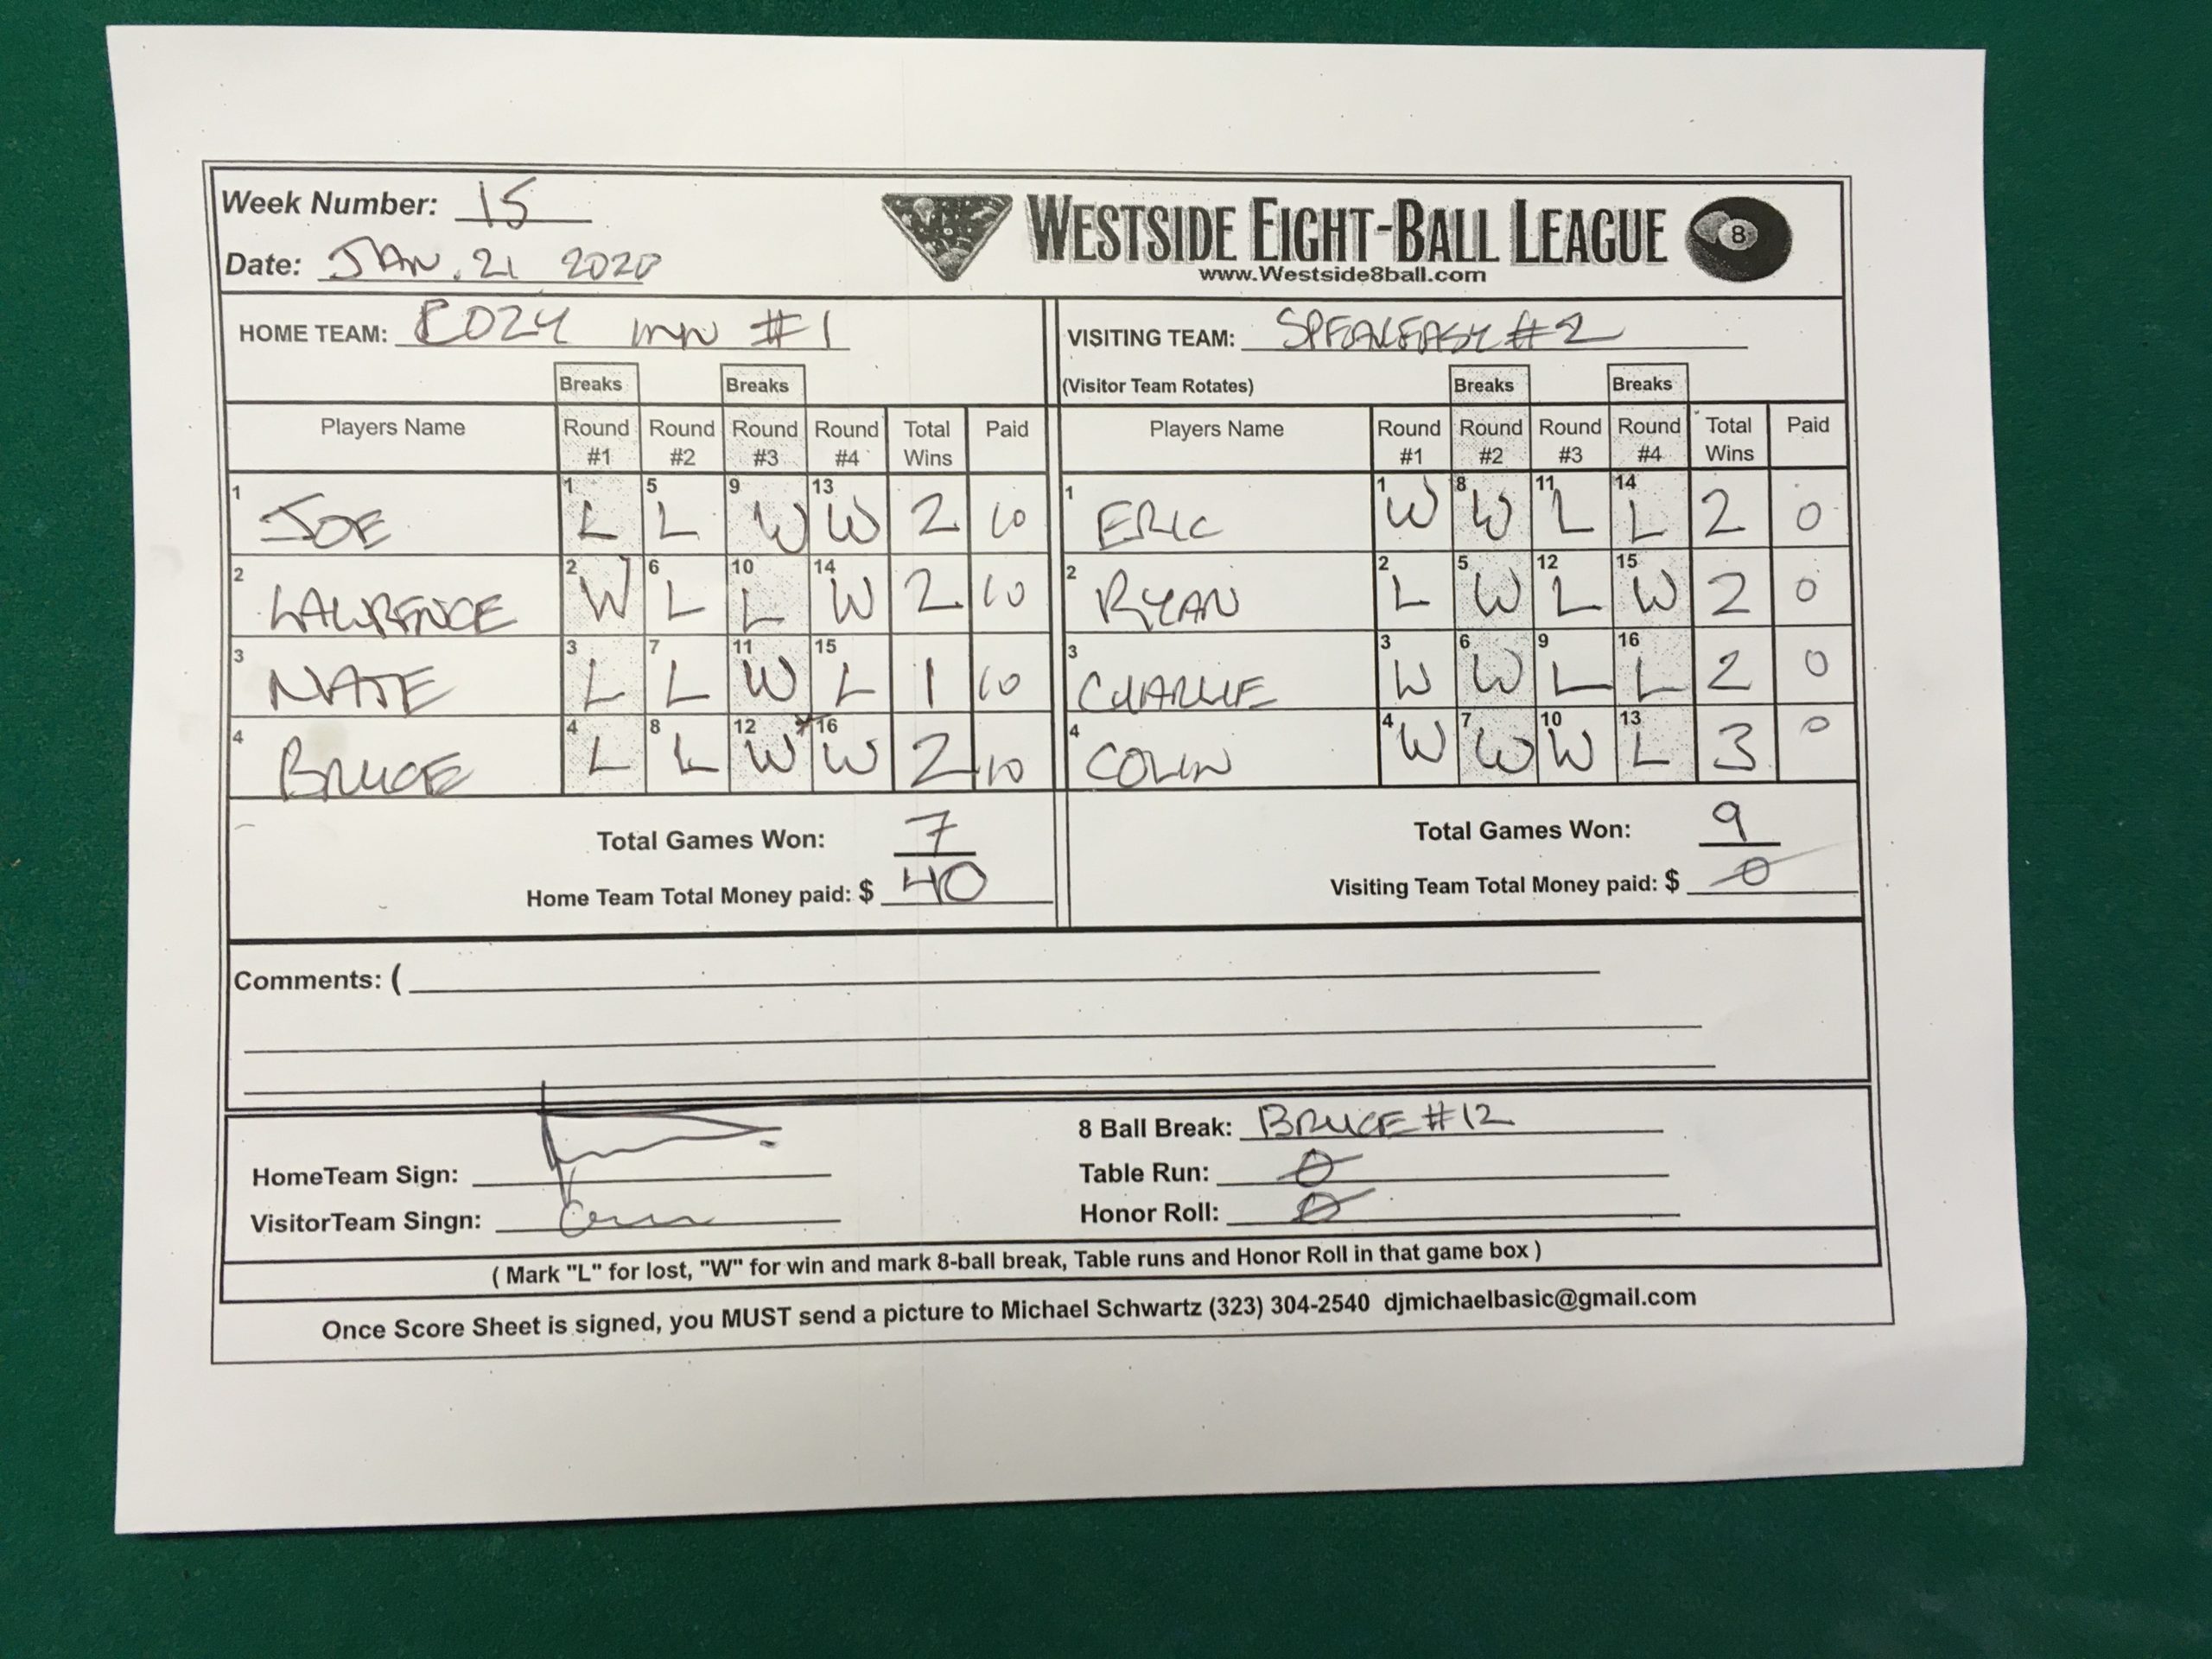 Week Number: 15
Date: JAN. 21 2020
WESTSIDE EIGHT-BALL LEAGUE 8
www.Westside8ball.com
HOME TEAM: COZY INN #1
VISITING TEAM: SPEAKEASY #2
Breaks Breaks
(Visitor Team Rotates) Breaks Breaks
Players Name Round #1 Round #2 Round #3 Round #4 Total Wins Paid
1 JOE 1 L 5 L 9 W 13 W 2 10
2 LAWRENCE 2 W 6 L 10 L 14 W 2 10
3 NATE 3 L 7 L 11 W 15 L 1 10
4 BRUCE 4 L 8 L 12 W * 16 W 2 10
Total Games Won: 7
Home Team Total Money paid: $ 40
Players Name Round #1 Round #2 Round #3 Round #4 Total Wins Paid
1 ERIC 1 W 8 W 11 L 14 L 2 0
2 RYAN 2 L 5 W 12 L 15 W 2 0
3 CHARLIE 3 W 6 W 9 L 16 L 2 0
4 COLIN 4 W 7 W 10 W 13 L 3 0
Total Games Won: 9
Visiting Team Total Money paid: $ 0
Comments: (
HomeTeam Sign:
VisitorTeam Singn:
8 Ball Break: BRUCE #12
Table Run: 0
Honor Roll: 0
( Mark "L" for lost, "W" for win and mark 8-ball break, Table runs and Honor Roll in that game box )
Once Score Sheet is signed, you MUST send a picture to Michael Schwartz (323) 304-2540 djmichaelbasic@gmail.com